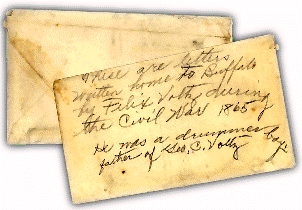 These are letters
written home to Buffalo
by Felix Voltz during
the Civil War 1865
He was a drummer boy
father of Geo. C. Voltz